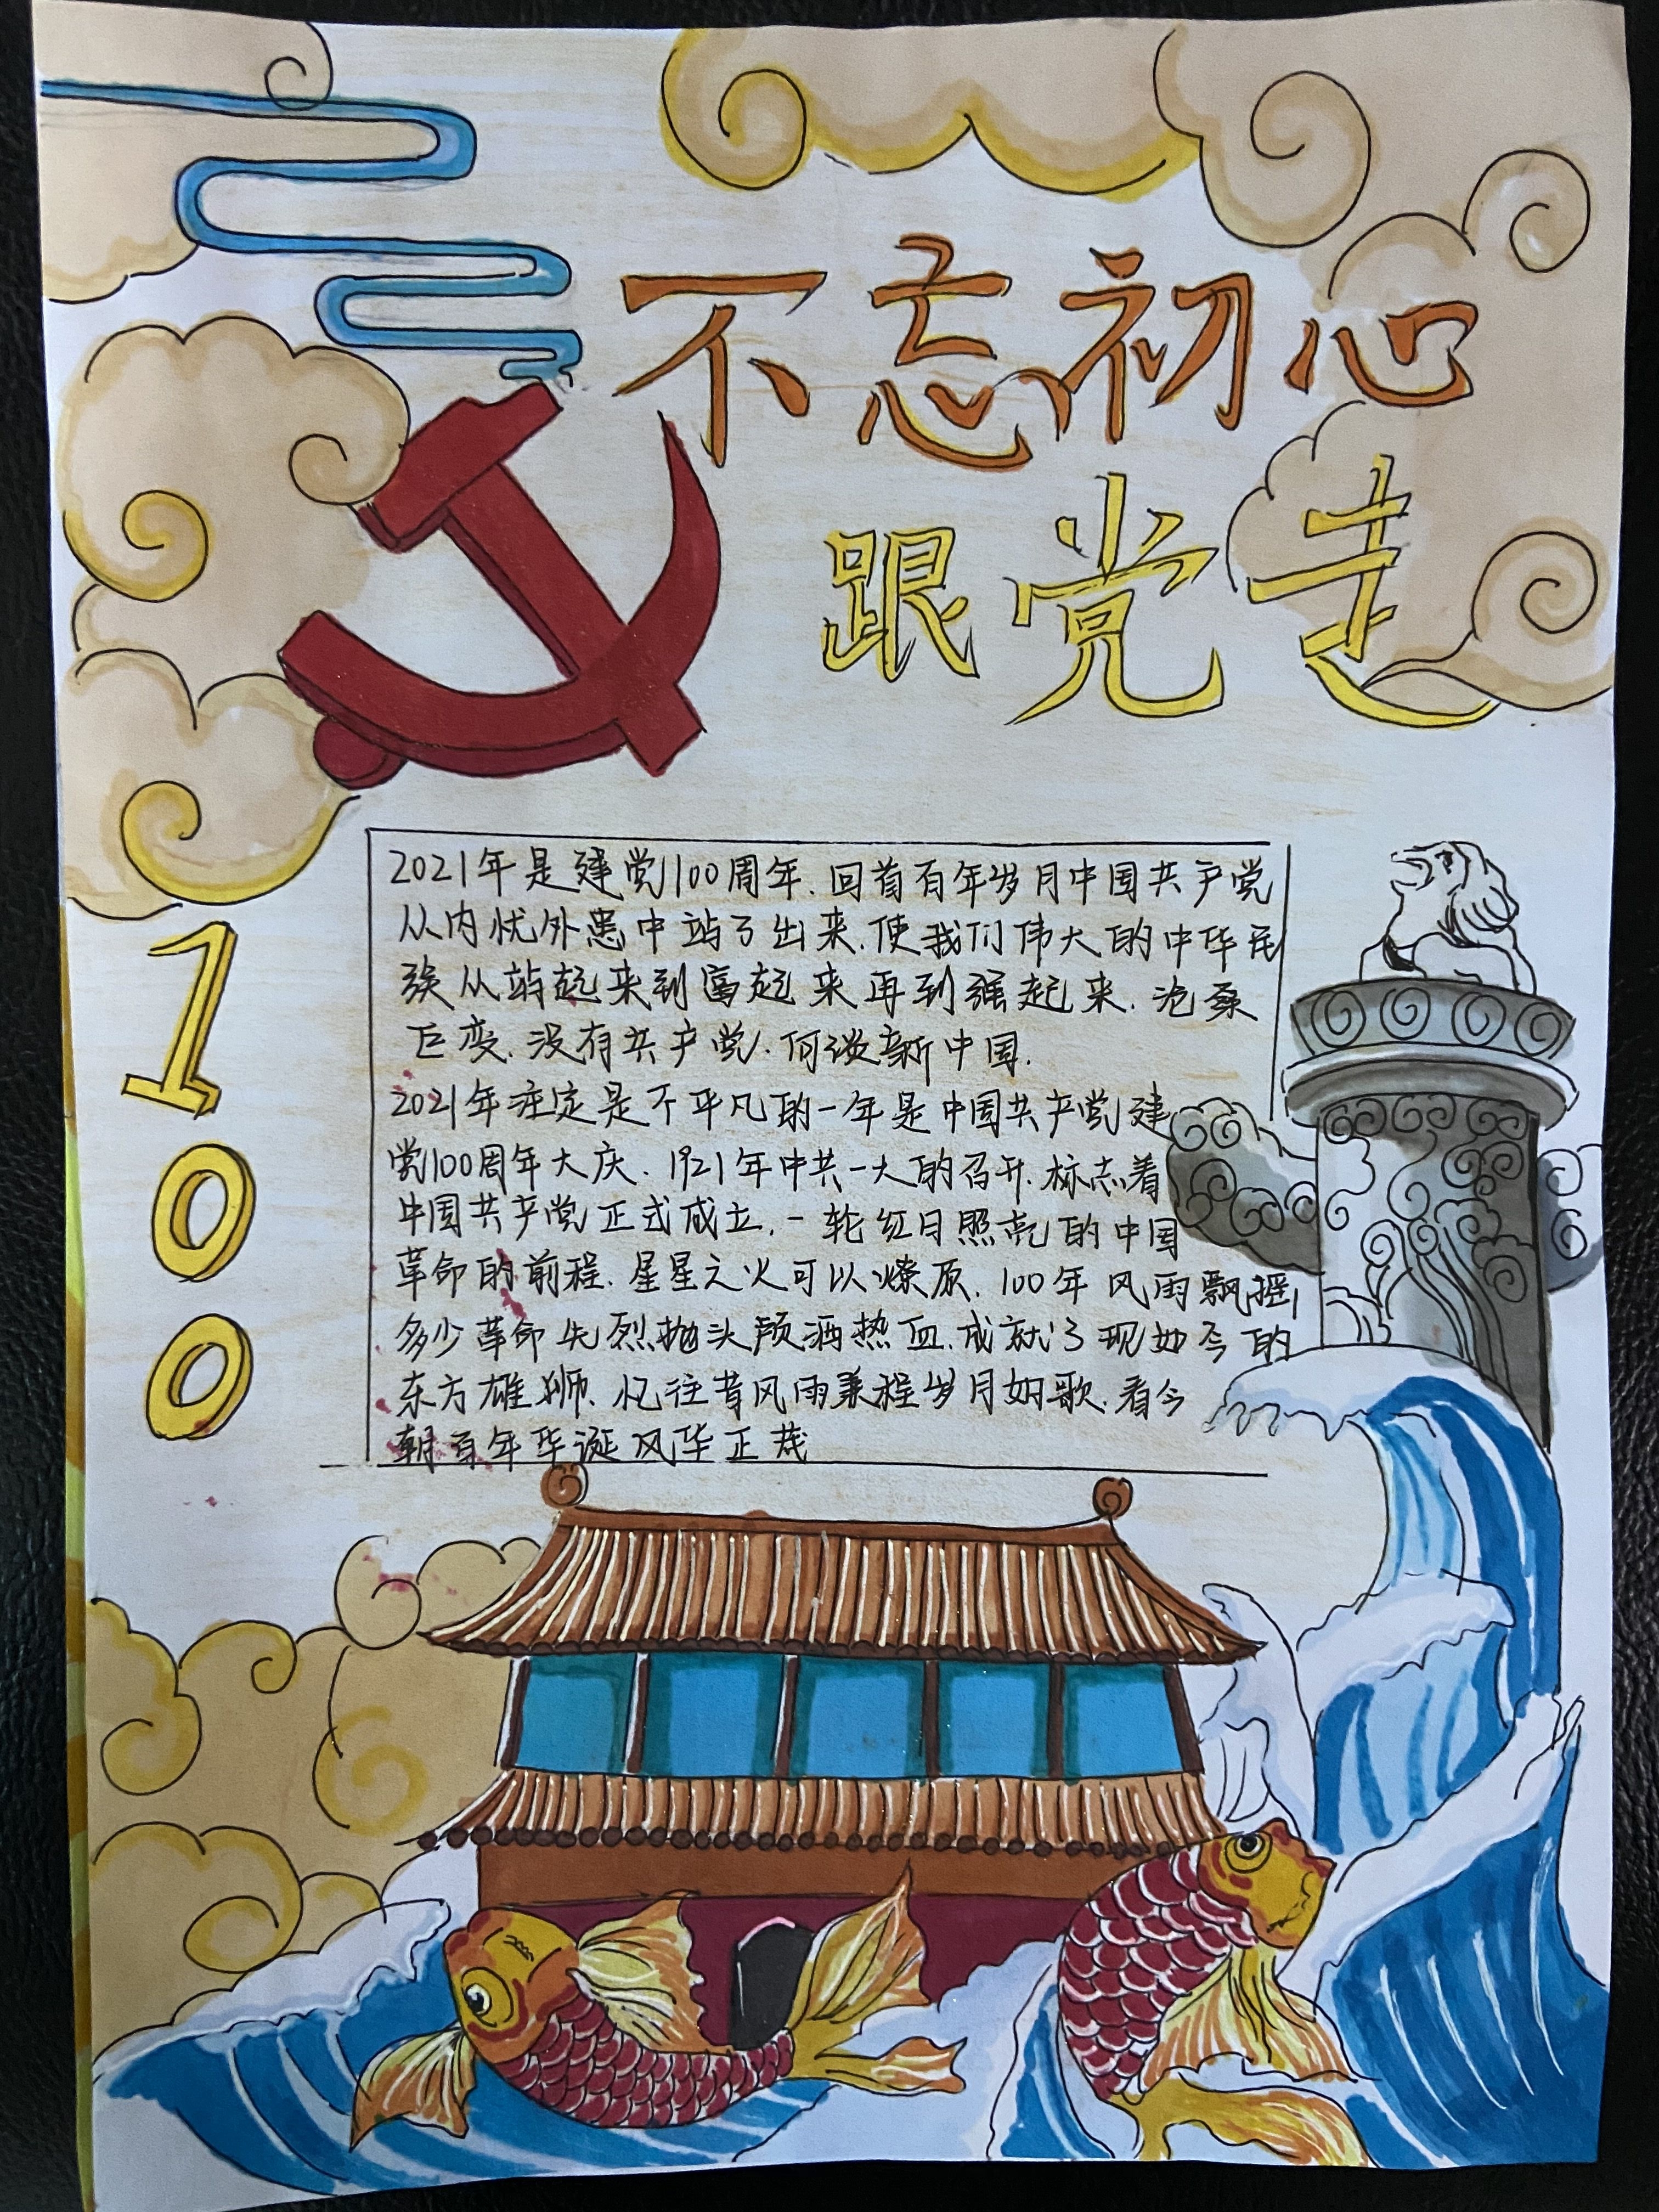 不忘初心
跟党走
100
2021年是建党100周年.回首百年岁月中国共产党
从内忧外患中站了出来.使我们伟大的中华民
族从站起来到富起来再到强起来.沧桑
巨变.没有共产党.何谈新中国.
2021年注定是不平凡的一年是中国共产党建
党100周年大庆.1921年中共一大的召开.标志着
中国共产党正式成立.一轮红日照亮的中国
革命的前程.星星之火可以燎原.100年风雨飘摇,
多少革命先烈抛头颅洒热血.成就了现如今的
东方雄狮.忆往昔风雨兼程岁月如歌.看今
朝百年华诞风华正茂